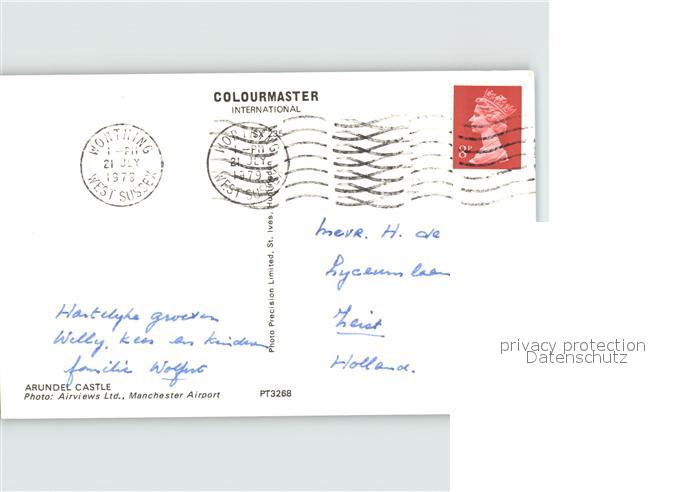 COLOURMASTER
INTERNATIONAL
WORTHING
1-PM
21 JLY
1979
WEST SUSSEX
WORTHING
1-PM
21 JLY
1979
WEST SUSSEX
8P
Photo Precision Limited, St. Ives,
Mevr. H. de
Lyceumlaan
Zeist
Holland.
Hartelijke groeten
Willy, Kees en kinderen
familie Wolfert
ARUNDEL CASTLE
Photo: Airviews Ltd., Manchester Airport
PT3268
privacy protection
Datenschutz